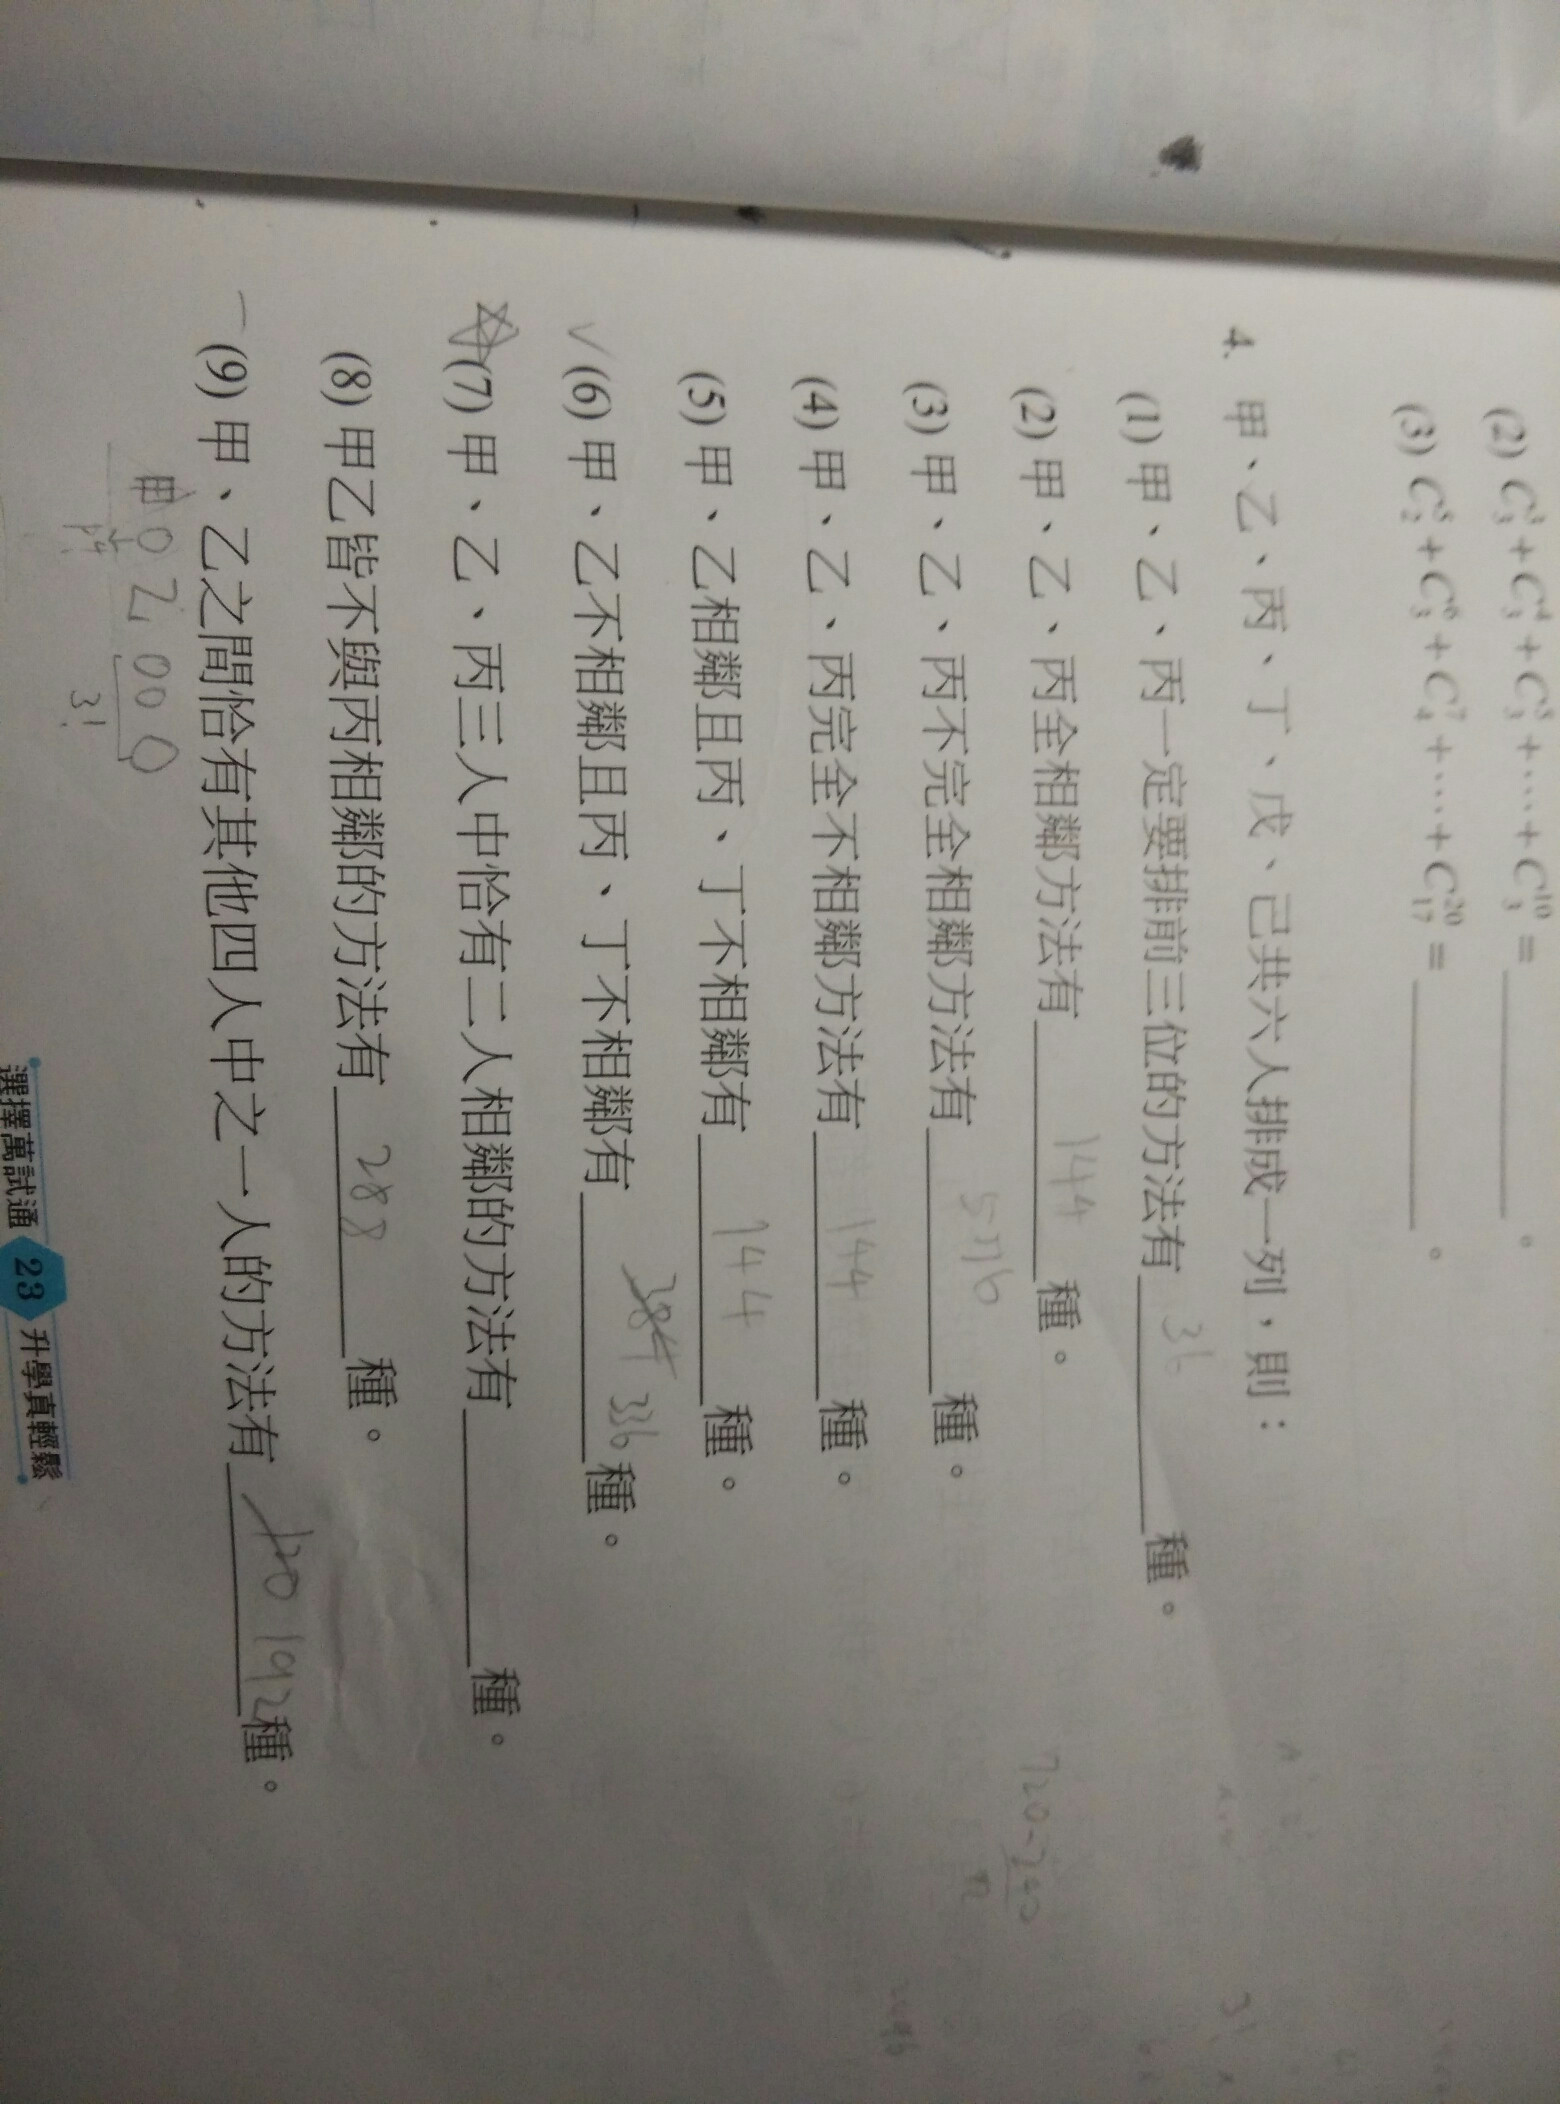 (2) C₃³ + C₃⁴ + C₃⁵ + … + C₃¹⁰ = ________ 。
(3) C₂⁵ + C₃⁶ + C₄⁷ + … + C₁₇²⁰ = ________ 。
4. 甲、乙、丙、丁、戊、己共六人排成一列，則：
(1) 甲、乙、丙一定要排前三位的方法有 36 種。
(2) 甲、乙、丙全相鄰方法有 144 種。
(3) 甲、乙、丙不完全相鄰方法有 576 種。
(4) 甲、乙、丙完全不相鄰方法有 144 種。
(5) 甲、乙相鄰且丙、丁不相鄰有 144 種。
(6) 甲、乙不相鄰且丙、丁不相鄰有 384 336 種。
(7) 甲、乙、丙三人中恰有二人相鄰的方法有 ________ 種。
(8) 甲乙皆不與丙相鄰的方法有 288 種。
(9) 甲、乙之間恰有其他四人中之一人的方法有 120 192 種。
甲 O 乙 O O O
3!
720-240
72
3!
選擇萬試通 23 升學真輕鬆